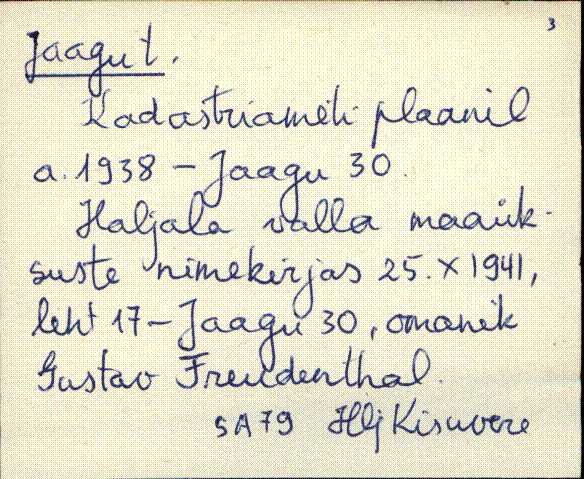 3
Jaagu t.
Kadastriameti plaanil
a. 1938 – Jaagu 30.
Haljala valla maaük-
suste nimekirjas 25. X 1941,
leht 17 – Jaagu 30, omanik
Gustav Freudenthal.
SA79 Hlj Kisuvere